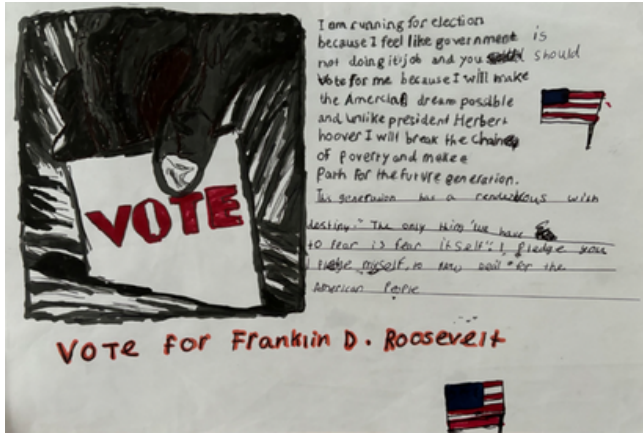 VOTE
I am running for election
because I feel like government is
not doing it job and you should
Vote for me because I will make
the American dream possible
and unlike president Herbert
hoover I will break the chains
of poverty and make a
Path for the future generation.
This generation has a rendezvous with
destiny." The only thing "we have
to fear is fear itself". I pledge you
I pledge myself, to new deal" for the
American People
Vote for Franklin D. Roosevelt